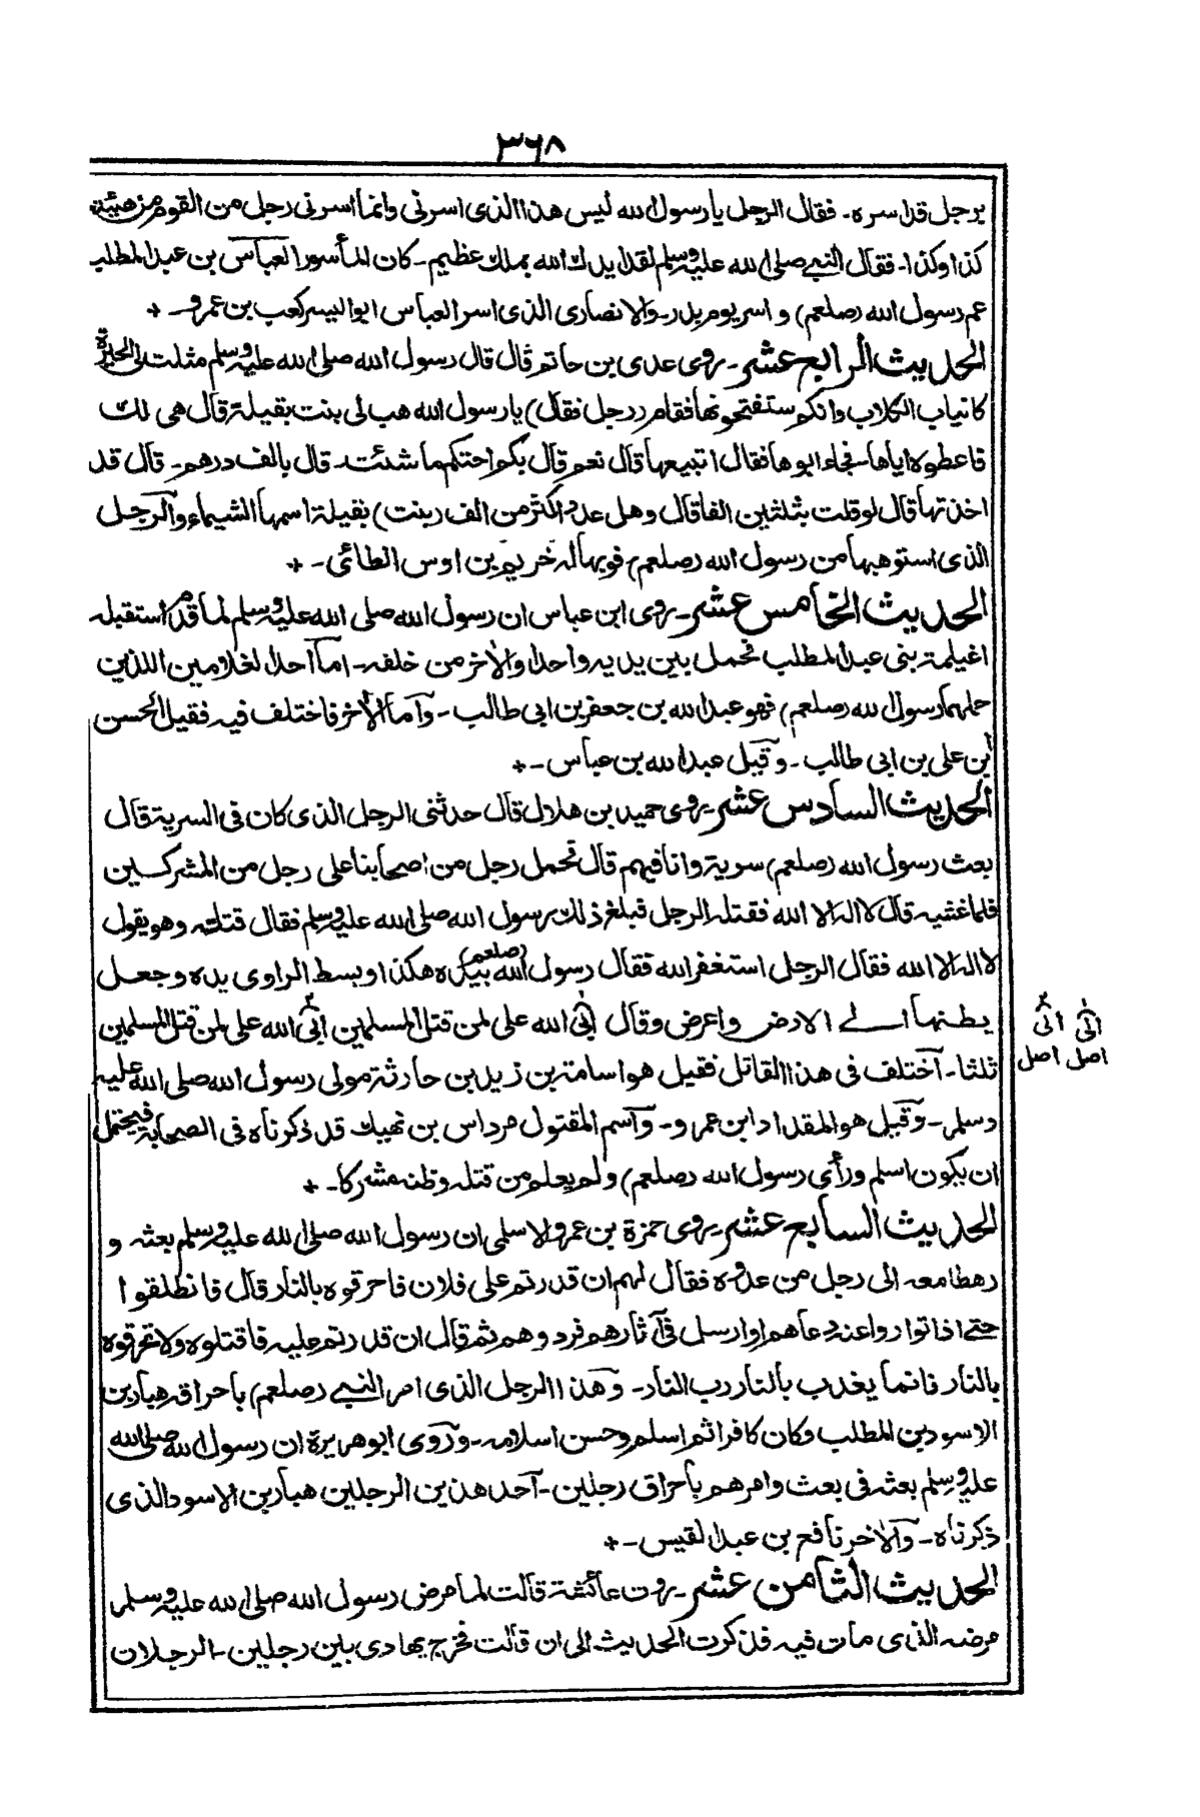 ٣٦٨
برجل قد اسره۔ فقال الرجل يا رسول الله ليس هذا الذى اسرنى وانما اسرنى رجل من القوم من هيئته
كذا وكذا۔ فقال النبى صلى الله عليه وسلم لقد ايدك الله بملك عظيم۔ كان المأسور العباس بن عبد المطلب
عم رسول الله (صلعم) و اسر يوم بدر۔ والانصارى الذى اسر العباس ابو اليسر كعب بن عمرو۔ +
الحديث الرابع عشر۔ روى عدى بن حاتم قال قال رسول الله صلى الله عليه وسلم مثلت لى الحيرة
كانياب الكلاب وانكم ستفتحونها فقام (رجل فقال) يا رسول الله هب لى بنت بقيلة قال هى لك
فاعطوه اياها۔ فجاء ابوها فقال اتبيعها قال نعم قال بكم احتكم ما شئت۔ قال بالف درهم۔ قال قد
اخذتها قال لو قلت بثلثين الفا قال وهل عدد اكثر من الف (بنت) بقيلة اسمها الشيماء والرجل
الذى استوهبها من رسول الله (صلعم) فوبهاله خريم بن اوس الطائى۔ +
الحديث الخامس عشر۔ روى ابن عباس ان رسول الله صلى الله عليه وسلم لما قدم استقبله
اغيلمة بنى عبد المطلب فحمل بين يديه واحدا والاخر من خلفه۔ اما احد الغلامين اللذين
حملهما رسول الله (صلعم) فهو عبد الله بن جعفر بن ابى طالب۔ واما الاخر فاختلف فيه فقيل الحسن
بن على بن ابى طالب۔ وقيل عبد الله بن عباس۔ +
الحديث السادس عشر۔ روى حميد بن هلال قال حدثنى الرجل الذى كان فى السرية قال
بعث رسول الله (صلعم) سرية وانا فيهم قال فحمل رجل من اصحابنا على رجل من المشركين
فلما غشيه قال لا اله الا الله فقتله الرجل فبلغ ذلك رسول الله صلى الله عليه وسلم فقال قتلته وهو يقول
لا اله الا الله فقال الرجل استغفر الله فقال رسول الله (صلعم) بيده هكذا وبسط الراوى يده وجعل
بطنها الى الارض واعرض وقال اَبَى الله على لمن قتل المسلمين اَبَى الله على لمن قتل المسلمين
ثلثا۔ اختلف فى هذا القاتل فقيل هو اسامة بن زيد بن حارثة مولى رسول الله صلى الله عليه
وسلم۔ وقيل هو المقداد ابن عمرو۔ واسم المقتول مرداس بن نهيك قد ذكرناه فى الصحابة فيحتمل
ان يكون اسلم ورأى رسول الله (صلعم) ولم يعلم من قتله وظنه مشركا۔ +
الحديث السابع عشر۔ روى حمزة بن عمرو الاسلمى ان رسول الله صلى الله عليه وسلم بعثه و
رهطا معه الى رجل من عدوه فقال لهم ان قدرتم على فلان فاحرقوه بالنار قال فانطلقوا
حتى اذا تواروا عنه دعاهم او ارسل فى آثارهم فردوهم ثم قال ان قدرتم عليه فاقتلوه ولا تحرقوه
بالنار فانما يعذب بالنار رب النار۔ وهذا الرجل الذى امر النبى (صلعم) باحراقه هبار بن
الاسود بن المطلب وكان كافرا ثم اسلم وحسن اسلامه۔ وروى ابو هريرة ان رسول الله صلى الله
عليه وسلم بعثه فى بعث وامرهم باحراق رجلين۔ احد هذين الرجلين هبار بن الاسود الذى
ذكرناه۔ والاخر نافع بن عبد القيس۔ +
الحديث الثامن عشر۔ روت عائشة قالت لما مرض رسول الله صلى الله عليه وسلم
مرضه الذى مات فيه فذكرت الحديث الى ان قالت فخرج يهادى بين رجلين۔ الرجلان
اٰنى اٰنى
اصل اصل